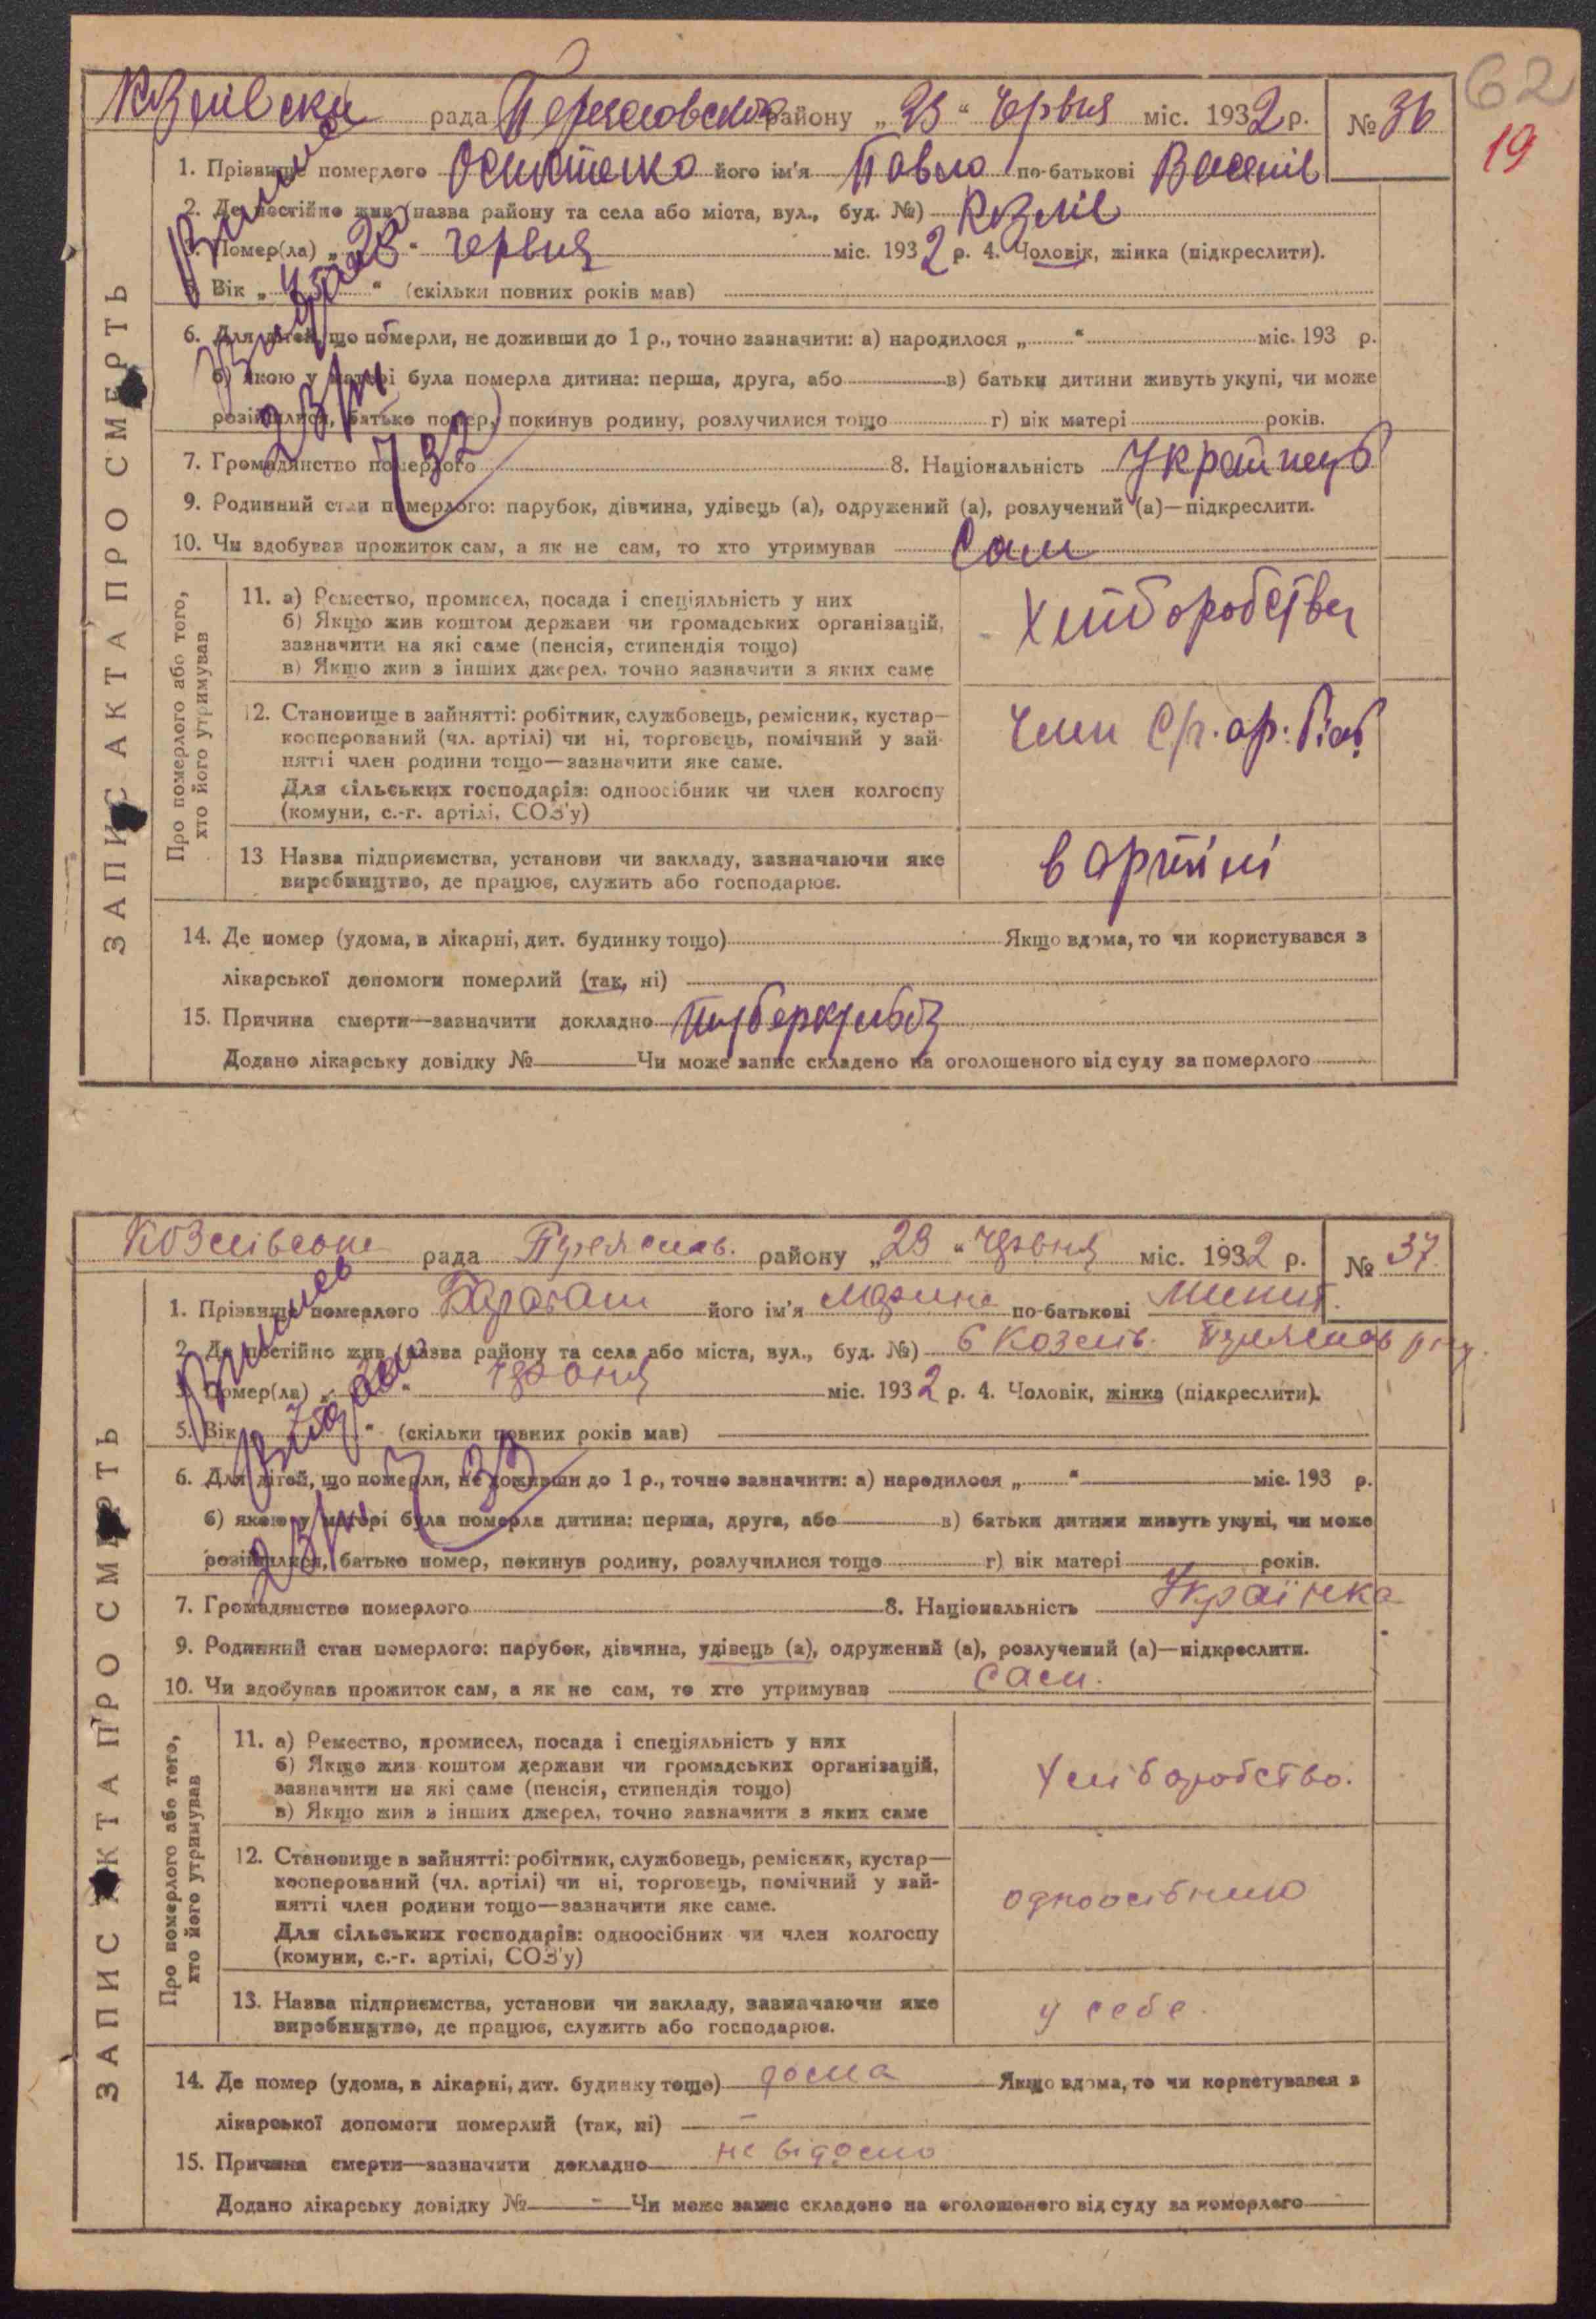 62
19
рада района „23“ Червня міс. 1932 р. № 36
1. Прізвище померлого його ім'я Павло по-батькові Василів
2. Де постійно жив (назва району та села або міста, вул., буд. №)
3. Помер(ла) „ “ червня міс. 1932 р. 4. Чоловік, жінка (підкреслити).
5. Вік „ “ (скільки повних років мав)
6. Для дітей, що померли, не доживши до 1 р., точно зазначити: а) народилося „ “ міс. 193 р.
б) якою у матері була померла дитина: перша, друга, або в) батьки дитини живуть укупі, чи може
розійшлися, батько помер, покинув родину, розлучилися тощо г) вік матері років.
7. Громадянство померлого 8. Національність Українець
9. Родинний стан померлого: парубок, дівчина, удівець (а), одружений (а), розлучений (а)—підкреслити.
10. Чи здобував прожиток сам, а як не сам, то хто утримував Сам
ЗАПИС АКТА ПРО СМЕРТЬ
Про померлого або того,
хто його утримував
11. а) Ремество, промисел, посада і спеціяльність у них
б) Якщо жив коштом держави чи громадських організацій,
зазначити на які саме (пенсія, стипендія тощо)
в) Якщо жив з інших джерел, точно зазначити з яких саме
12. Становище в зайнятті: робітник, службовець, ремісник, кустар—
кооперований (чл. артілі) чи ні, торговець, помічний у зай-
нятті член родини тощо—зазначити яке саме.
Для сільських господарів: одноосібник чи член колгоспу
(комуни, с.-г. артілі, СОЗ'у)
13 Назва підприємства, установи чи закладу, зазначаючи яке
виробництво, де працює, служить або господарює.
в артілі
14. Де помер (удома, в лікарні, дит. будинку тощо) Якщо вдома, то чи користувався з
лікарської допомоги померлий (так, ні)
15. Причина смерти—зазначити докладно туберкульоз
Додано лікарську довідку № Чи може запис складено на оголошеного від суду за померлого
рада Переяслав. району „23“ червня міс. 1932 р. № 37
1. Прізвище померлого його ім'я по-батькові
2. Де постійно жив (назва району та села або міста, вул., буд. №)
3. Помер(ла) „ “ червня міс. 1932 р. 4. Чоловік, жінка (підкреслити).
5. Вік „ “ (скільки повних років мав)
6. Для дітей, що померли, не доживши до 1 р., точно зазначити: а) народилося „ “ міс. 193 р.
б) якою у матері була померла дитина: перша, друга, або в) батьки дитини живуть укупі, чи може
розійшлися, батько помер, покинув родину, розлучилися тощо г) вік матері років.
7. Громадянство померлого 8. Національність Українка
9. Родинний стан померлого: парубок, дівчина, удівець (а), одружений (а), розлучений (а)—підкреслити.
10. Чи здобував прожиток сам, а як не сам, то хто утримував сам.
ЗАПИС АКТА ПРО СМЕРТЬ
Про померлого або того,
хто його утримував
11. а) Ремество, промисел, посада і спеціяльність у них
б) Якщо жив коштом держави чи громадських організацій,
зазначити на які саме (пенсія, стипендія тощо)
в) Якщо жив з інших джерел, точно зазначити з яких саме
хліборобство.
12. Становище в зайнятті: робітник, службовець, ремісник, кустар—
кооперований (чл. артілі) чи ні, торговець, помічний у зай-
нятті член родини тощо—зазначити яке саме.
Для сільських господарів: одноосібник чи член колгоспу
(комуни, с.-г. артілі, СОЗ'у)
13. Назва підприємства, установи чи закладу, зазначаючи яке
виробництво, де працює, служить або господарює.
у себе.
14. Де помер (удома, в лікарні, дит. будинку тощо) дома Якщо вдома, то чи користувався з
лікарської допомоги померлий (так, ні) —
15. Причина смерти—зазначити докладно не відомо
Додано лікарську довідку № - Чи може запис складено на оголошеного від суду за померлого